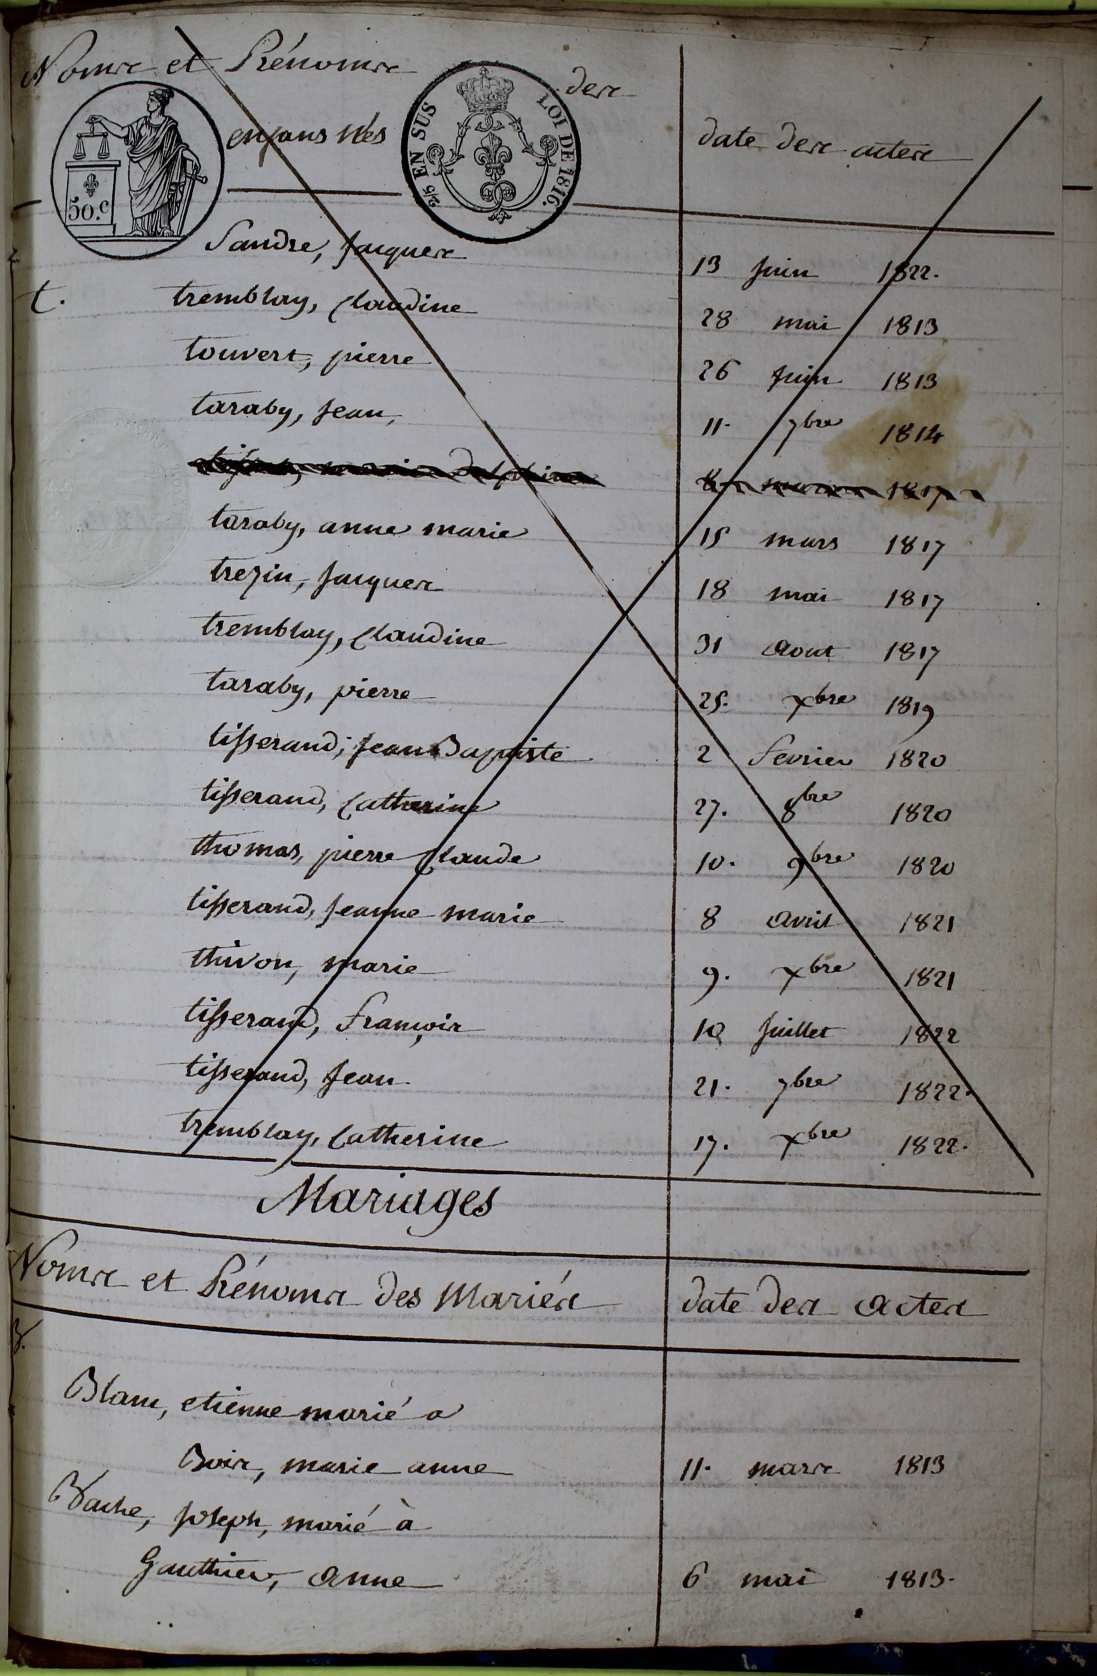 Noms et Prénoms des
enfans Nés
date des actes
50.c
2/5 EN SUS LOI DE 1816.
Sandre, Jacques 13 Juin 1822.
t. tremblay, Claudine 28 mai 1813
touvert, pierre 26 Juin 1813
taraby, Jean, 11. 7bre 1814
1817
taraby, anne marie 15 mars 1817
trezin, Jacques 18 mai 1817
tremblay, Claudine 31 Aout 1817
taraby, pierre 25. xbre 1819
tisserand, Jean Baptiste 2 fevrier 1820
tisserand, Catherine 27. 8bre 1820
thomas, pierre Claude 10. 9bre 1820
tisserand, Jeanne marie 8 avril 1821
thivon, marie 9. xbre 1821
tisserand, François Juillet 1822
tisserand, Jean 21. 7bre 1822.
tremblay, Catherine 17. xbre 1822.
Mariages
Noms et Prénoms des Mariés date des Actes
B.
Blanc, etienne marié a
Bois, marie anne 11. mars 1813
Bache, Joseph, marié à
Gauthier, Anne 6 mai 1813.